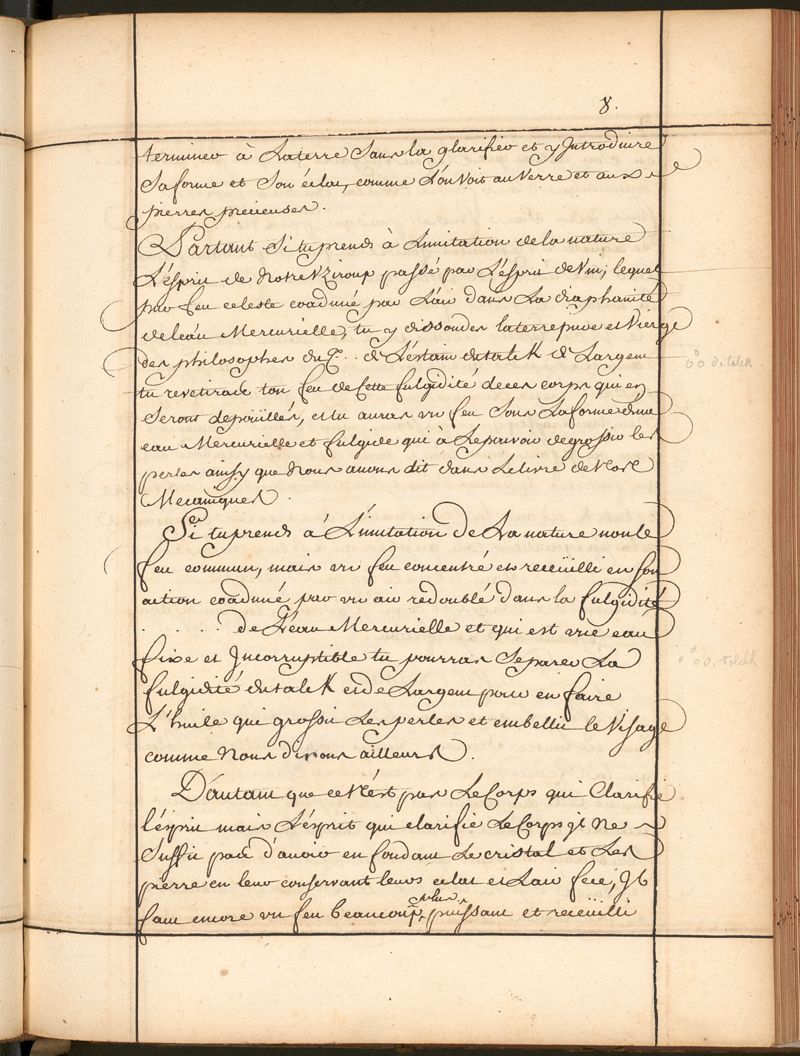 8.
terminer à La terre Sans la glarifier et y Introduire
Sa forme et Son éclat, comme L'on Voit au Verre et aux
pierres precieuses.
Partant Si tu prends à Limitation de la nature
L'ésprit de Notre passé par L'ésprit de Vin, lequel
par feu celeste coaduné par L'air dans La diaphanité
de leau Mercurielle, tu y dissoudes la terre pure et Vierge
des philosophes du de L'éstain du talck et de Largent
tu retireras ton feu de Cette fulgidité de ces corps qui en
Seront depoüillés, et tu auras un feu Sous La forme dune
eau Mercurielle et fulgide qui à Le pouvoir de grossir les
perles ainsy que Nous auons dit dans Le livre de Nos
Mecaniques.
Si tu prends à L'imitation de La nature non le
feu commun, mais un feu concentré et recüeilli en Son
action coaduné par un air redoublé dans la fulgidité
. . . . de L'éau Mercurielle et qui est une eau
fixe et Incorruptible tu pourras Separer La
fulgidité du talck et de Largent pour en faire
L'huile qui grossit Les perles et embellit le Visage
comme Nous dirons ailleurs.
D'autant que ce N'ést pas Le Corps qui Clarifie
l'ésprit mais L'ésprit qui clarifie Le Corps jl Ne
Suffit pas d'auoir en fondant Le cristal et Les
pierre en leur conservant leurs eclat et Lair fixe, Jl
plus
faut encore un feu beaucoup puissant et recüeilli
du talck
du talck